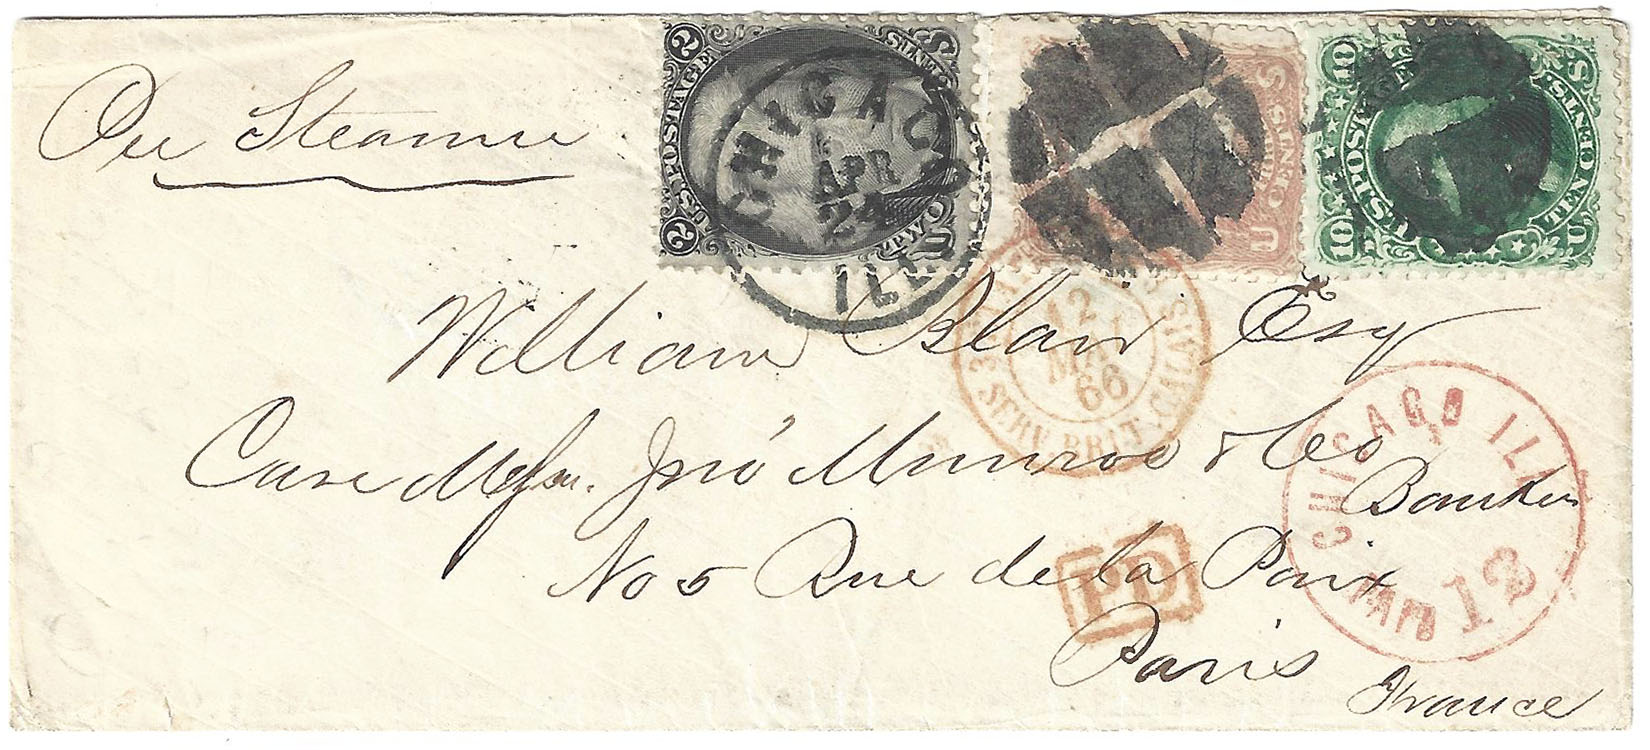 2 U.S. POSTAGE 2 TWO CENTS
U CENTS S
10 U.S. POSTAGE 10 TEN CENTS U S
CHICAGO ILL
APR
24
Per Steamer
William Blair Esq
Care Messrs. Jno Munroe & Co
Bankers
No 5 Rue de la Paix
Paris
France
12
MAI
66
SERV. BRIT. CALAIS
CHICAGO ILL
PAID 12
PD